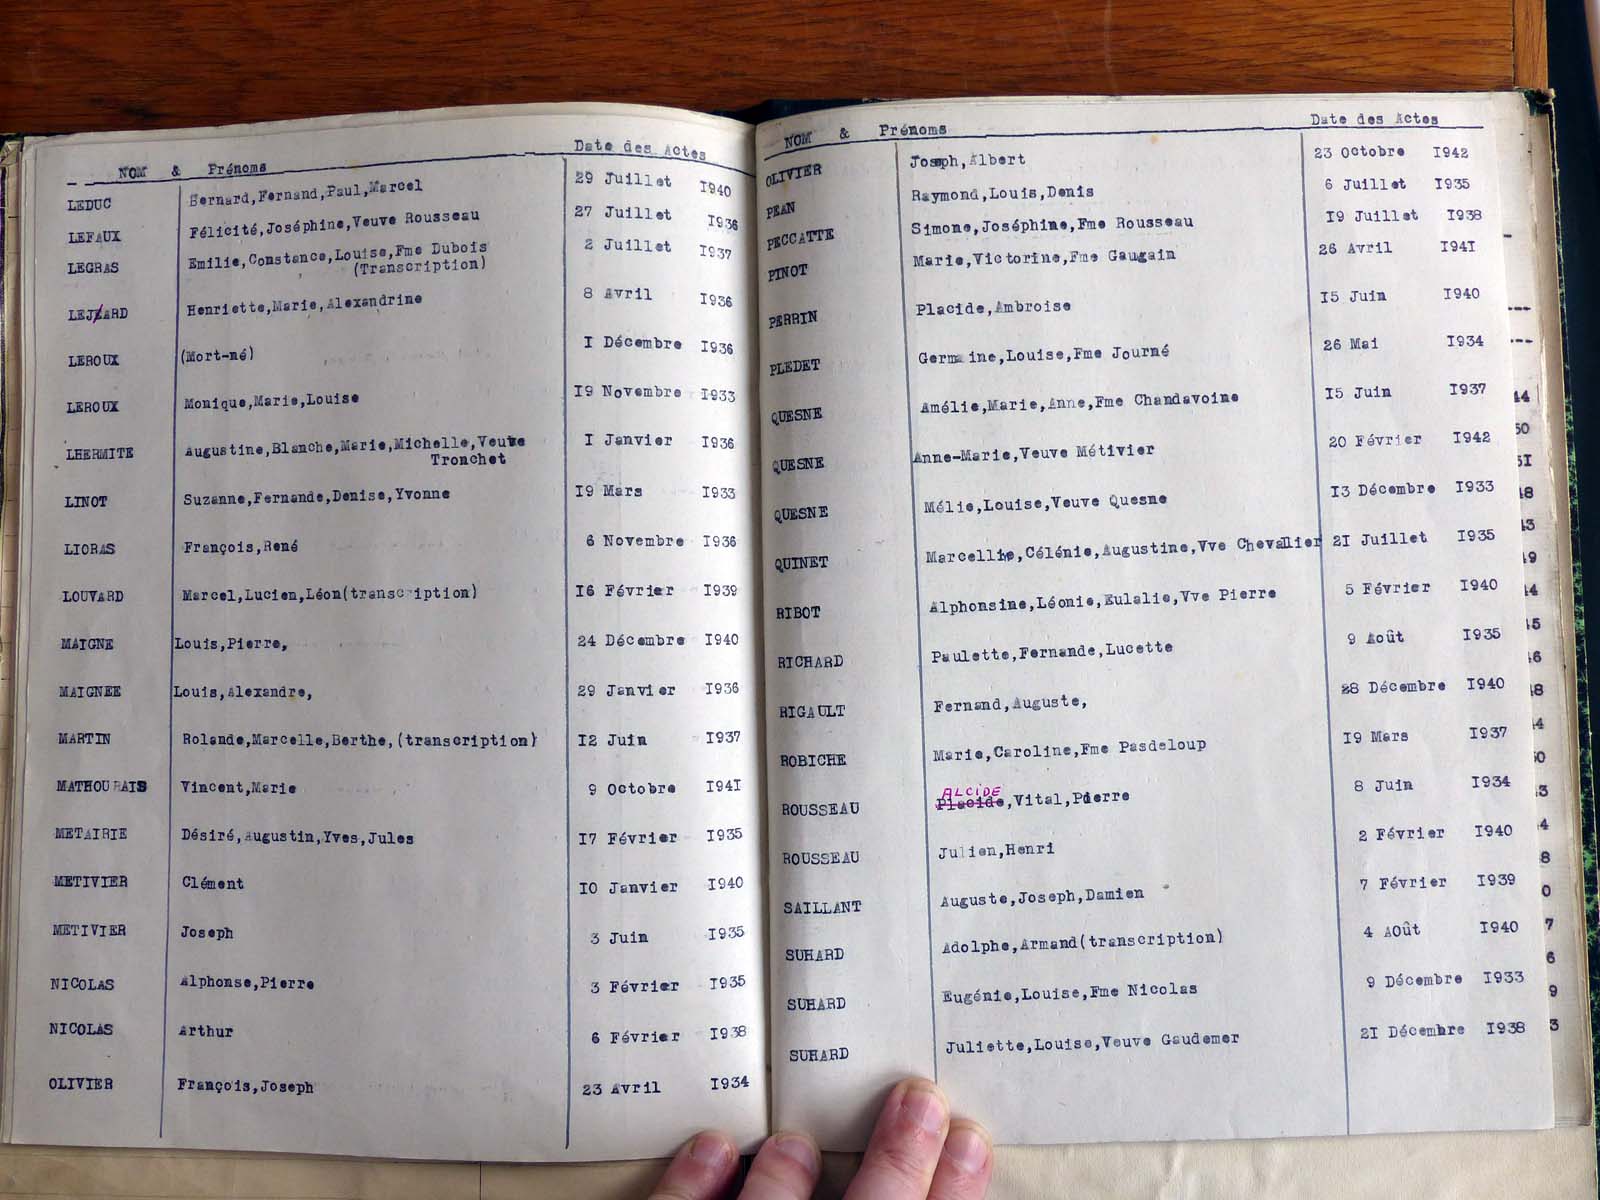 NOM & Prénoms Date des Actes
LEDUC Bernard,Fernand,Paul,Marcel 29 Juillet I940
LEFAUX Félicité,Joséphine,Veuve Rousseau 27 Juillet I936
LEGRAS Emilie,Constance,Louise,Fme Dubois 2 Juillet I937
(Transcription)
LEJARD Henriette,Marie,Alexandrine 8 Avril I936
LEROUX (Mort-né) I Décembre I936
LEROUX Monique,Marie,Louise I9 Novembre I933
LHERMITE Augustine,Blanche,Marie,Michelle,Veuve I Janvier I936
Tronchet
LINOT Suzanne,Fernande,Denise,Yvonne I9 Mars I933
LIORAS François,René 6 Novembre I936
LOUVARD Marcel,Lucien,Léon(transcription) I6 Février I939
MAIGNE Louis,Pierre, 24 Décembre I940
MAIGNEE Louis,Alexandre, 29 Janvier I936
MARTIN Rolande,Marcelle,Berthe,(transcription) I2 Juin I937
MATHOURAIS Vincent,Marie 9 Octobre I94I
METAIRIE Désiré,Augustin,Yves,Jules I7 Février I935
METIVIER Clément I0 Janvier I940
METIVIER Joseph 3 Juin I935
NICOLAS Alphonse,Pierre 3 Février I935
NICOLAS Arthur 6 Février I938
OLIVIER François,Joseph 23 Avril I934
NOM & Prénoms Date des Actes
OLIVIER Joseph,Albert 23 Octobre I942
PEAN Raymond,Louis,Denis 6 Juillet I935
PECCATTE Simone,Joséphine,Fme Rousseau I9 Juillet I938
PINOT Marie,Victorine,Fme Gaugain 26 Avril I94I
PERRIN Placide,Ambroise I5 Juin I940
PLEDET Germaine,Louise,Fme Journé 26 Mai I934
QUESNE Amélie,Marie,Anne,Fme Chandavoine I5 Juin I937
QUESNE Anne-Marie,Veuve Métivier 20 Février I942
QUESNE Mélie,Louise,Veuve Quesne I3 Décembre I933
QUINET Marcellie,Célénie,Augustine,Vve Chevallier 2I Juillet I935
RIBOT Alphonsine,Léonie,Eulalie,Vve Pierre 5 Février I940
RICHARD Paulette,Fernande,Lucette 9 Août I935
RIGAULT Fernand,Auguste, 28 Décembre I940
ROBICHE Marie,Caroline,Fme Pasdeloup I9 Mars I937
ALCIDE
ROUSSEAU Placide,Vital,Pierre 8 Juin I934
ROUSSEAU Julien,Henri 2 Février I940
SAILLANT Auguste,Joseph,Damien 7 Février I939
SUHARD Adolphe,Armand(transcription) 4 AOût I940
SUHARD Eugénie,Louise,Fme Nicolas 9 Décembre I933
SUHARD Juliette,Louise,Veuve Gaudemer 2I Décembre I938